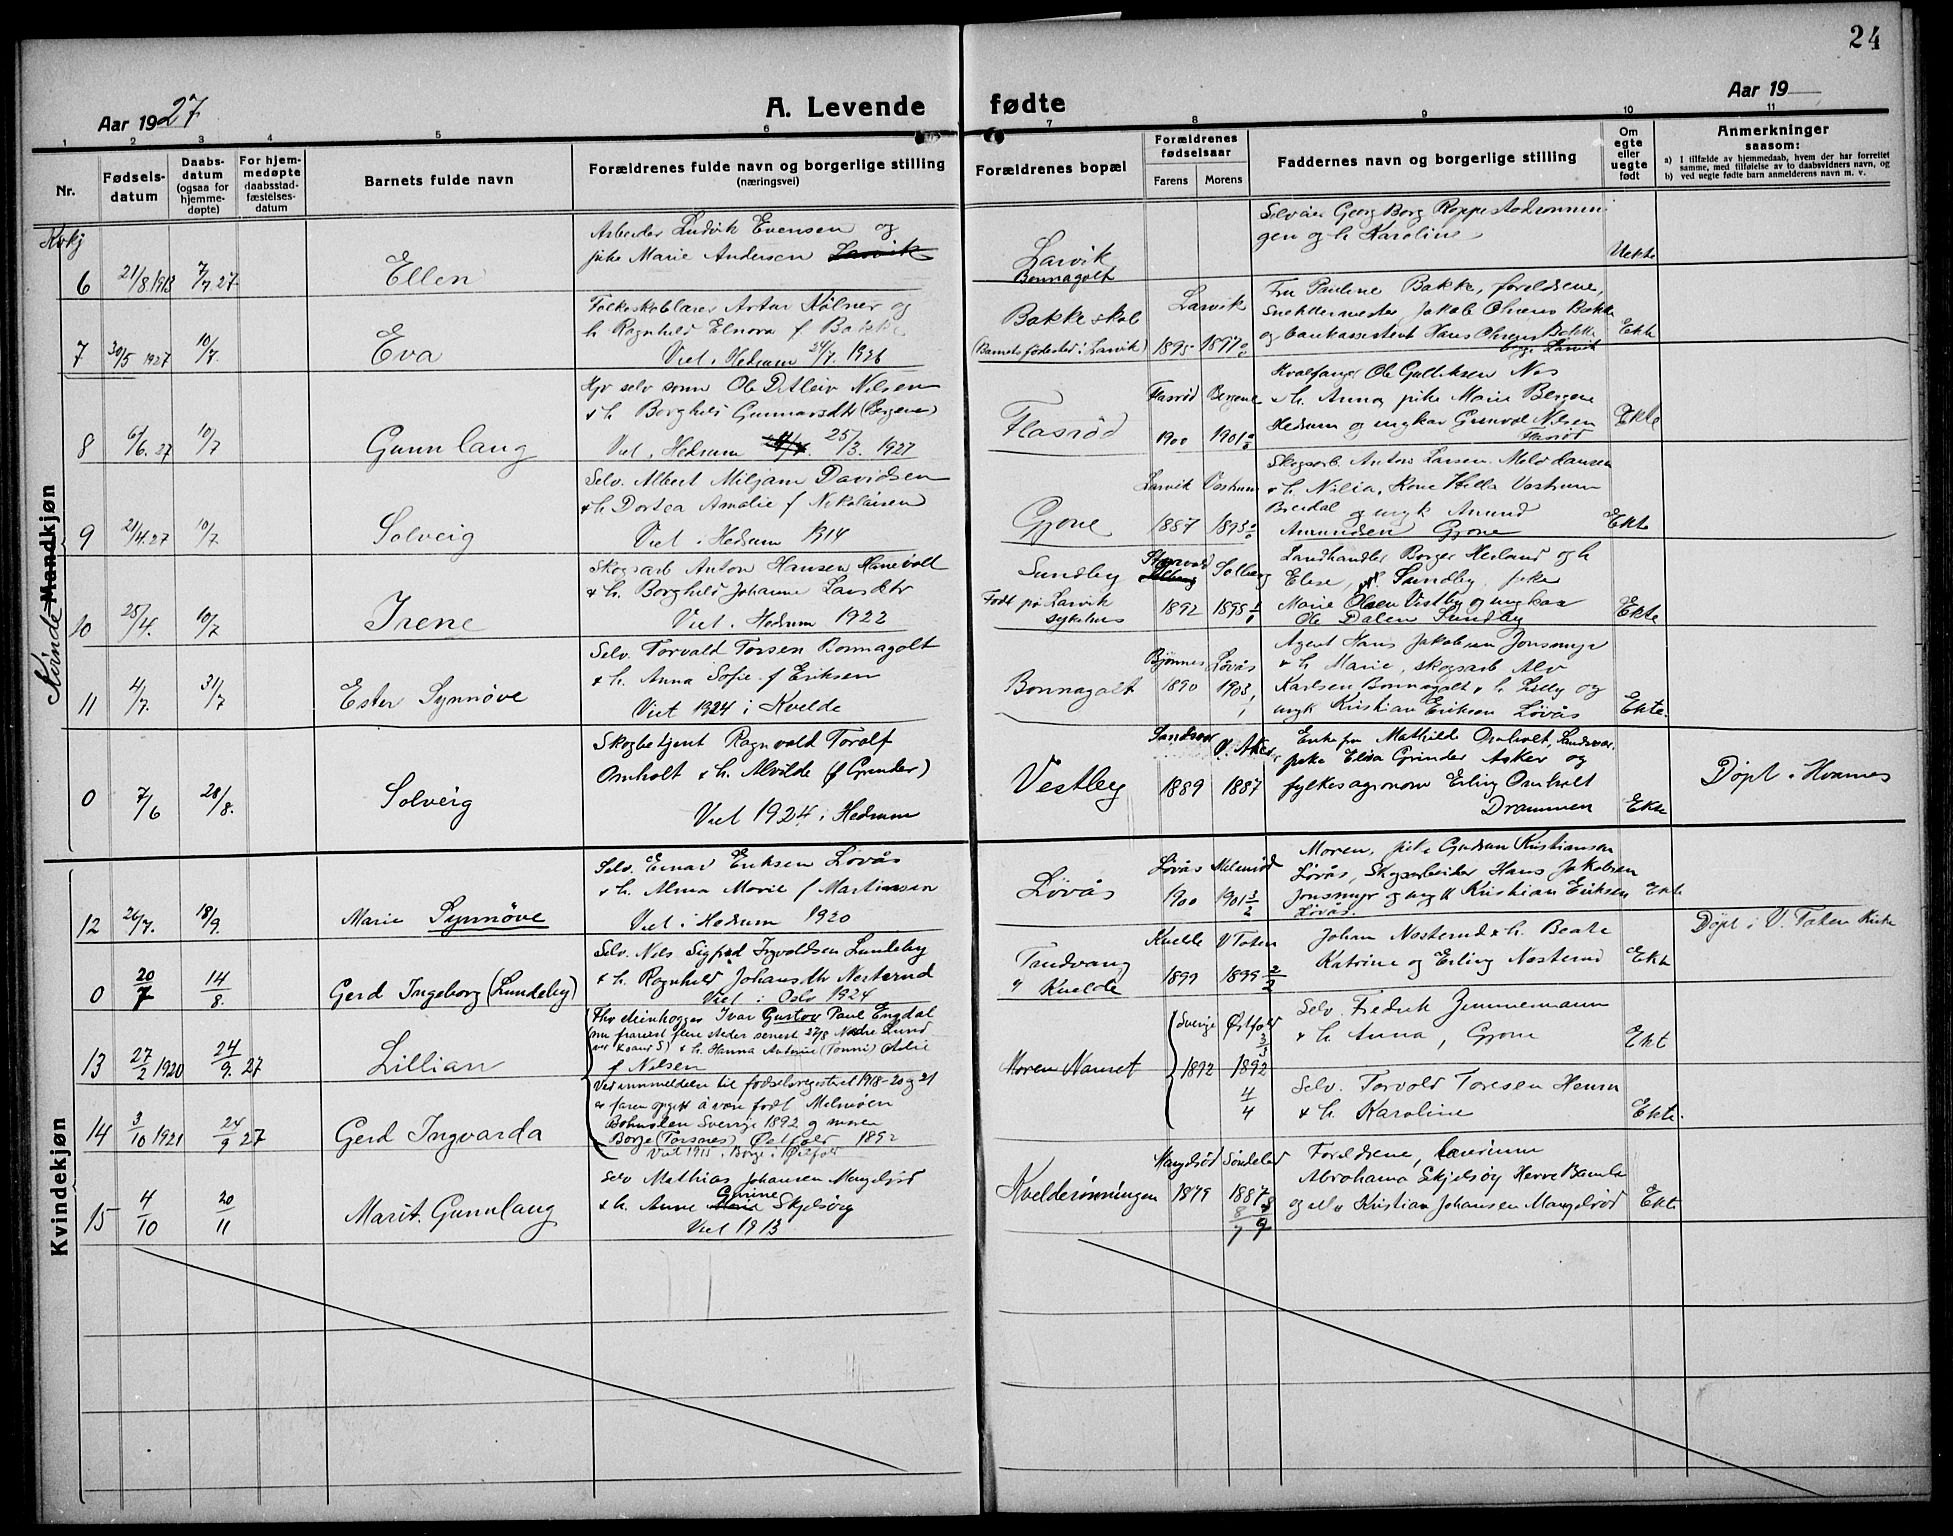 24
Aar 1927
A. Levende fødte
Aar 19
1 2 3 4 5 6 7 8 9 10 11
Nr.
Fødsels-
datum
Daabs-
datum
(ogsaa for
hjemme-
døpte)
For hjem-
medøpte
daabsstad-
fæstelses-
datum
Barnets fulde navn
Forældrenes fulde navn og borgerlige stilling
(næringsvei)
Forældrenes bopæl
Forældrenes
fødselsaar
Farens Morens
Faddernes navn og borgerlige stilling
Om
egte
eller
uegte
født
Anmerkninger
saasom:
a) I tilfælde av hjemmedaab, hvem der har forrettet
samme, med tilføielse av to daabsvidners navn, og
b) ved uegte fødte barn anmelderens navn m. v.
Kvinde Mandkjøn
6 21/8 1913 7/7 27 Ellen
Arbeider Ludvik Evensen og
pike Marie Andersen Larvik
Larvik
Bonnagolt
Georg Borg
gen og h. Karoline
Uekte
7 30/5 1927 10/7 Eva
Artur Kölner og
h. Ragnhild Elnora f Bakke
Viet i Hedrum 24/7 1926
Bakke skole
(Barnets fødested i Larvik)
Larvik
1895 1897
Fru Pauline Bakke, foreldrene,
Snekkermester Jakob Olsens Bakke
og bankassistent Hans Bakke
Larvik
Ekte
8 6/6 27 10/7 Gunnlaug
Ole Detleiv Nilsen
& h. Borghild Gunnarsdtr (Bergene)
Viet i Hedrum 25/3 1927
Flasrød
Flasrød Bergene
1900 1901
Hvalfanger Ole Gulliksen Nes
& h. Anna, pike Marie Bergene
Hedrum og ungkar Gunvald Nilsen
Flasrød
Ekte
9 21/4 27 10/7 Solveig
Selv. Albert Miljam Davidsen
& h. Dortea Amalie f Nikolaisen
Viet i Hedrum 1914
Gjone
Larvik Vestrum
1887 1893
Skogsarb. Anton Larsen
& h. Nilia, Kone Hilla Vestrum
Breidal og ungk Amund
Amundsen Gjone
Ekte
10 25/4 10/7 Irene
Skogsarb Anton Hansen
& h. Borghild Johanne Larsdtr
Viet i Hedrum 1922
Sundby
Født på Larvik
sykehus
Solberg
1892 1895
Landhandler Borger Heiland og h
Elise, Sundby, pike
Marie Olsen Vestby og ungkar
Ole Dalen Sundby
Ekte
11 4/7 31/7 Ester Synnøve
Selv. Torvald Torsen Bonnagolt
& h. Anna Sofie f Eriksen
Viet 1924 i Kvelde
Bonnagolt
Bjønnes Løvås
1890 1903
Agent Hans Jakobsen Jonsmyr
& h. Marie, skogsarb Alv
Karlsen, Bonnagolt & h. Lilly og
ungk Kristian Eriksen Løvås
Ekte
0 7/6 28/8 Solveig
Skogbetjent Ragnvald Toralf
Omholt & h. Alvilde (f Grinder)
Viet 1924 i Hedrum
Vestby
Sandsvær V. Aker
1889 1887
Enkefru Mathilde Omholt, Sandsvær.
pike Elisa Grinder Asker og
fylkesagronom Erling Omholt
Drammen
Ekte
Døpt i Hvarnes
Kvindekjøn
12 26/7 18/9 Marie Synnøve
Selv. Einar Eriksen Løvås
& h. Alma Marie f Martinsen
Viet i Hedrum 1920
Løvås
Løvås Melsnrød
1900 1901 3/2
Moren, pike Gudrun Kristiansen
Løvås, Skogsarbeider Hans Jakobsen
Jonsmyr og ungk Kristian Eriksen
Løvås.
Ekte
0 20/7 14/8 Gerd Ingeborg (Lundeby)
Selv. Nils Sigfred Ingvoldsen Lundeby
& h. Ragnhild Johansdtr Nesterud
Viet i Oslo 1924
Tandvang
i Kvelde
Kvelde V Toten
1899 1899 2/2
Johan Nosterud & h. Beate
Katrine og Erling Nosterud
Ekte
Døpt i V. Toten Kirke
13 27/2 1920 24/9 27 Lillian
Steinhogger Ivar Gustav Paul Engdal
& h. Hanna Antonie (Tonni) Odlie
f Nilsen
Moren Namset
Sverige Østfold
3/3
1892 1892
4/4
Selv. Fredrik Zimmermann
& h. Anna, Gjone
Ekte
14 3/10 1921 24/9 27 Gerd Ingvarda
Ved innmelding til fødselsregistret 1918-20 og 21
er faren opgitt å være født
Bohuslen Sverige 1892 og moren
Borge (Torsnes) Østfold 1892
Viet 1915 i Borge i Østfold
Selv. Torvald Toresen Henrn
& h. Karoline
Ekte.
15 4/10 20/11 Marit Gunnlaug
Selv Mathias Johansen Mangelrød
& h. Anne Gurine Skjelsøy
Viet 1913
Kvelderønningen
Mangelrød Søndeled
1879 1887
8/7 8/9
Foreldrene,
Abrahama Skjelsøy Herre Bamle
og selv Kristian Johansen Mangelrød
Ekte